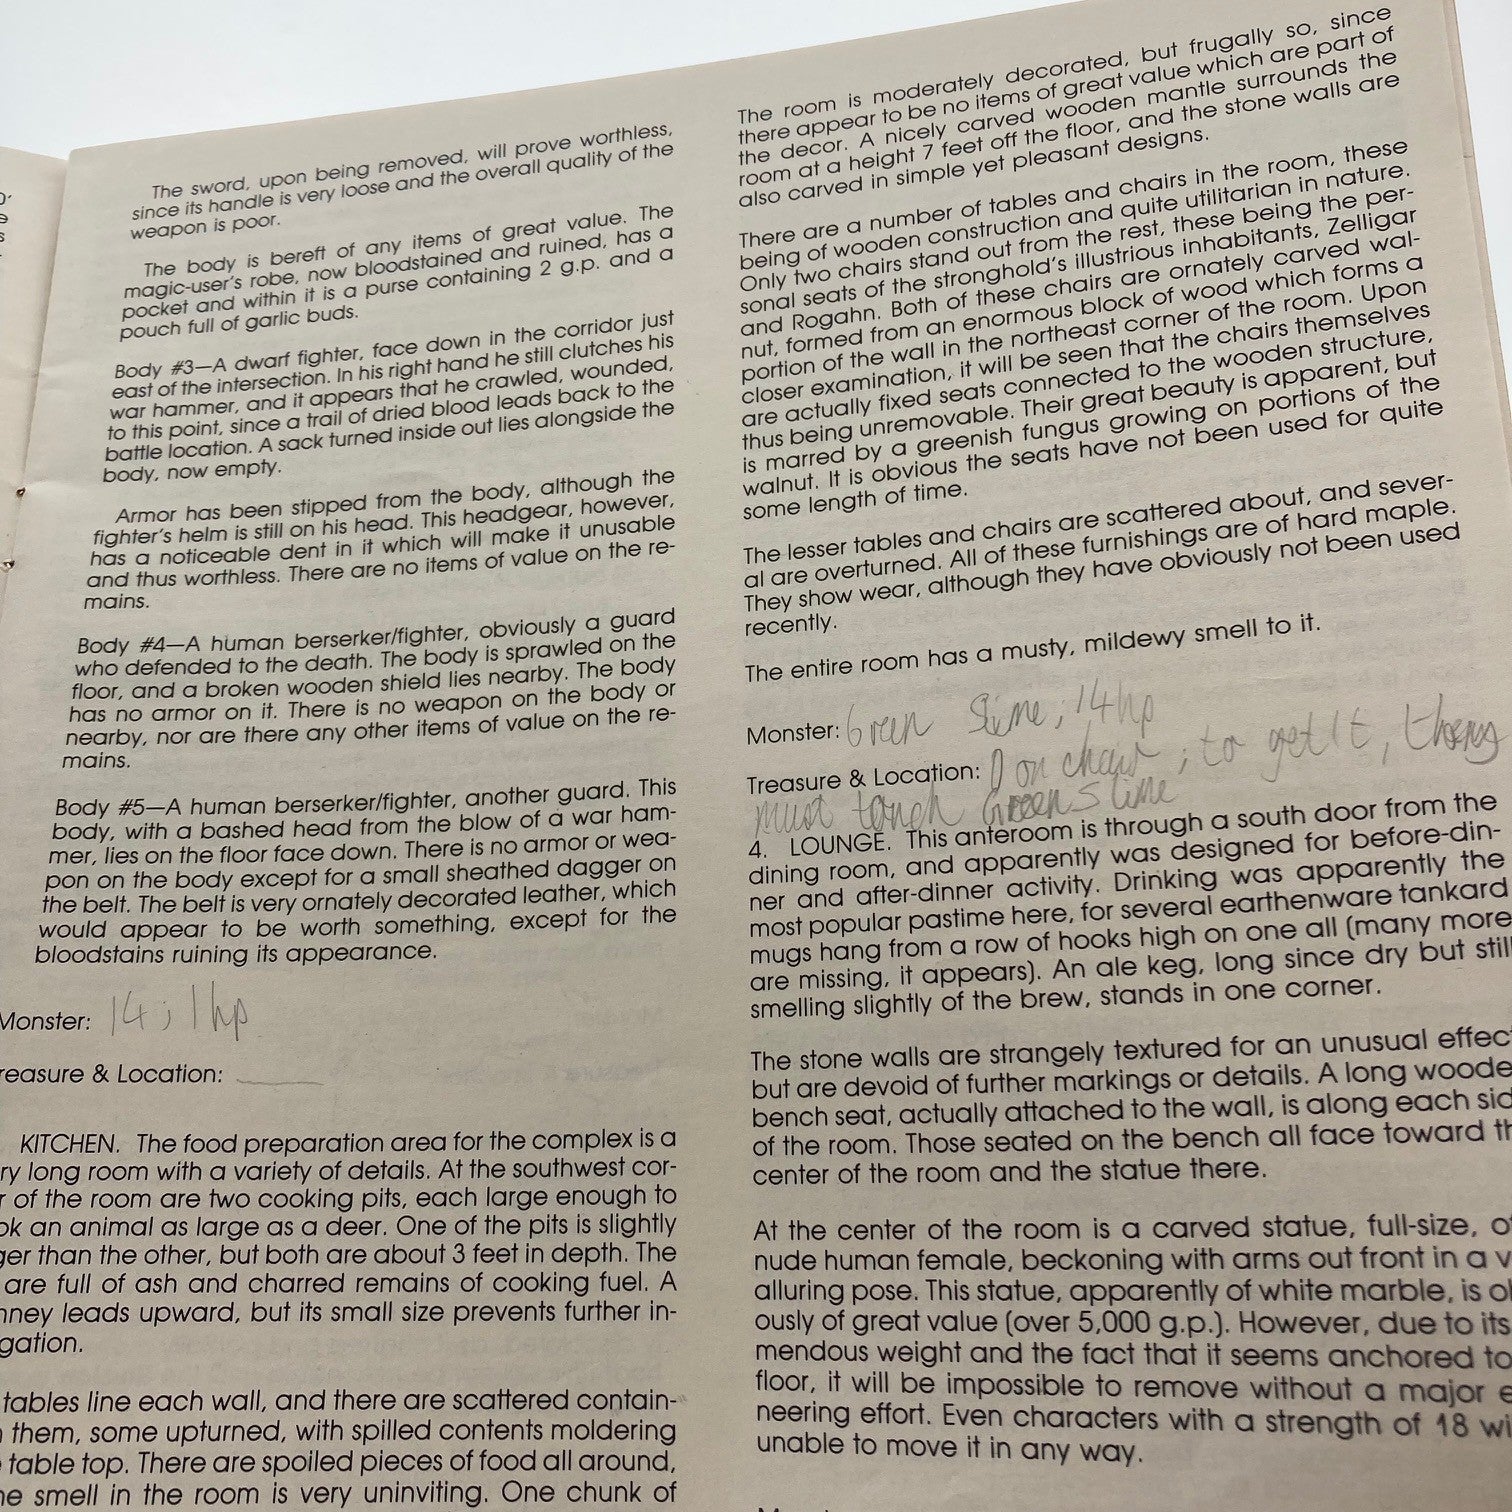 The sword, upon being removed, will prove worthless,
since its handle is very loose and the overall quality of the
weapon is poor.
The body is bereft of any items of great value. The
magic-user's robe, now bloodstained and ruined, has a
pocket and within it is a purse containing 2 g.p. and a
pouch full of garlic buds.
Body #3—A dwarf fighter, face down in the corridor just
east of the intersection. In his right hand he still clutches his
war hammer, and it appears that he crawled, wounded,
to this point, since a trail of dried blood leads back to the
battle location. A sack turned inside out lies alongside the
body, now empty.
Armor has been stipped from the body, although the
fighter's helm is still on his head. This headgear, however,
has a noticeable dent in it which will make it unusable
and thus worthless. There are no items of value on the re-
mains.
Body #4—A human berserker/fighter, obviously a guard
who defended to the death. The body is sprawled on the
floor, and a broken wooden shield lies nearby. The body
has no armor on it. There is no weapon on the body or
nearby, nor are there any other items of value on the re-
mains.
Body #5—A human berserker/fighter, another guard. This
body, with a bashed head from the blow of a war ham-
mer, lies on the floor face down. There is no armor or wea-
pon on the body except for a small sheathed dagger on
the belt. The belt is very ornately decorated leather, which
would appear to be worth something, except for the
bloodstains ruining its appearance.
Monster: 14; 1 hp
reasure & Location:
KITCHEN. The food preparation area for the complex is a
ry long room with a variety of details. At the southwest cor-
r of the room are two cooking pits, each large enough to
ok an animal as large as a deer. One of the pits is slightly
ger than the other, but both are about 3 feet in depth. The
are full of ash and charred remains of cooking fuel. A
nney leads upward, but its small size prevents further in-
gation.
tables line each wall, and there are scattered contain-
them, some upturned, with spilled contents moldering
table top. There are spoiled pieces of food all around,
he smell in the room is very uninviting. One chunk of
The room is moderately decorated, but frugally so, since
there appear to be no items of great value which are part of
the decor. A nicely carved wooden mantle surrounds the
room at a height 7 feet off the floor, and the stone walls are
also carved in simple yet pleasant designs.
There are a number of tables and chairs in the room, these
being of wooden construction and quite utilitarian in nature.
Only two chairs stand out from the rest, these being the per-
sonal seats of the stronghold's illustrious inhabitants, Zelligar
and Rogahn. Both of these chairs are ornately carved wal-
nut, formed from an enormous block of wood which forms a
portion of the wall in the northeast corner of the room. Upon
closer examination, it will be seen that the chairs themselves
are actually fixed seats connected to the wooden structure,
thus being unremovable. Their great beauty is apparent, but
is marred by a greenish fungus growing on portions of the
walnut. It is obvious the seats have not been used for quite
some length of time.
The lesser tables and chairs are scattered about, and sever-
al are overturned. All of these furnishings are of hard maple.
They show wear, although they have obviously not been used
recently.
The entire room has a musty, mildewy smell to it.
Monster: Green Slime; 14 hp
Treasure & Location: on chair; to get it,
must touch Green Slime
4. LOUNGE. This anteroom is through a south door from the
dining room, and apparently was designed for before-din-
ner and after-dinner activity. Drinking was apparently the
most popular pastime here, for several earthenware tankard
mugs hang from a row of hooks high on one all (many more
are missing, it appears). An ale keg, long since dry but still
smelling slightly of the brew, stands in one corner.
The stone walls are strangely textured for an unusual effec
but are devoid of further markings or details. A long woode
bench seat, actually attached to the wall, is along each sid
of the room. Those seated on the bench all face toward th
center of the room and the statue there.
At the center of the room is a carved statue, full-size, o
nude human female, beckoning with arms out front in a v
alluring pose. This statue, apparently of white marble, is ob
ously of great value (over 5,000 g.p.). However, due to its
mendous weight and the fact that it seems anchored to
floor, it will be impossible to remove without a major e
neering effort. Even characters with a strength of 18 wi
unable to move it in any way.